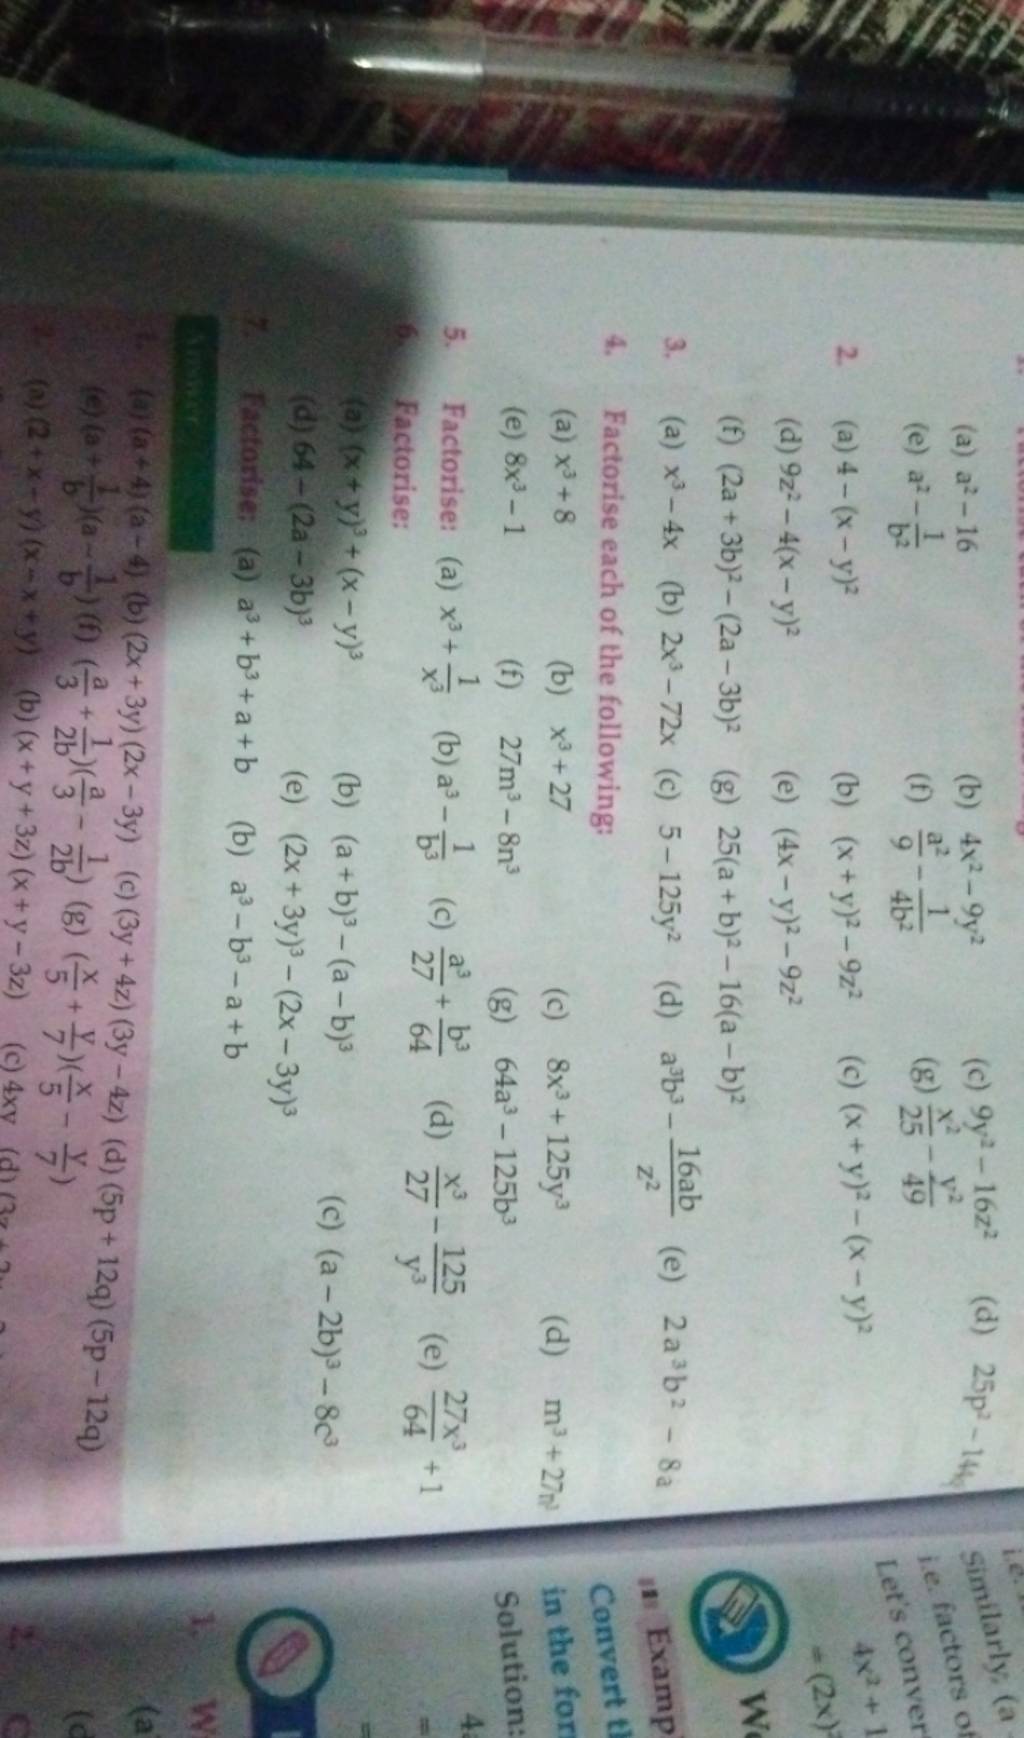 (a) a² – 16 (b) 4x² – 9y² (c) 9y² – 16z² (d) 25p² –
(e) a² – 1/b² (f) a²/9 – 1/4b² (g) x²/25 – y²/49
2. (a) 4 – (x – y)² (b) (x + y)² – 9z² (c) (x + y)² – (x – y)²
(d) 9z² – 4(x – y)² (e) (4x – y)² – 9z²
(f) (2a + 3b)² – (2a – 3b)² (g) 25(a + b)² – 16(a – b)²
3. (a) x³ – 4x (b) 2x³ – 72x (c) 5 – 125y² (d) a³b³ – 16ab/z² (e) 2a³b² – 8a
4. Factorise each of the following:
(a) x³ + 8 (b) x³ + 27 (c) 8x³ + 125y³ (d) m³ + 27n³
(e) 8x³ – 1 (f) 27m³ – 8n³ (g) 64a³ – 125b³
5. Factorise: (a) x³ + 1/x³ (b) a³ – 1/b³ (c) a³/27 + b³/64 (d) x³/27 – 125/y³ (e) 27x³/64 + 1
6. Factorise:
(a) (x + y)³ + (x – y)³ (b) (a + b)³ – (a – b)³ (c) (a – 2b)³ – 8c³
(d) 64 – (2a – 3b)³ (e) (2x + 3y)³ – (2x – 3y)³
7. Factorise: (a) a³ + b³ + a + b (b) a³ – b³ – a + b
Answer
1. (a) (a + 4) (a – 4) (b) (2x + 3y) (2x – 3y) (c) (3y + 4z) (3y – 4z) (d) (5p + 12q) (5p – 12q)
(e) (a + 1/b)(a – 1/b) (f) (a/3 + 1/2b)(a/3 – 1/2b) (g) (x/5 + y/7)(x/5 – y/7)
(a) (2 + x – y) (b) (x + y + 3z) (x + y – 3z) (c) 4xy (d)
Similarly, (a
i.e. factors of
Let's conver
4x² + 1
= (2x)²
Examp
Convert
in the for
Solution:
1.
(a
2.